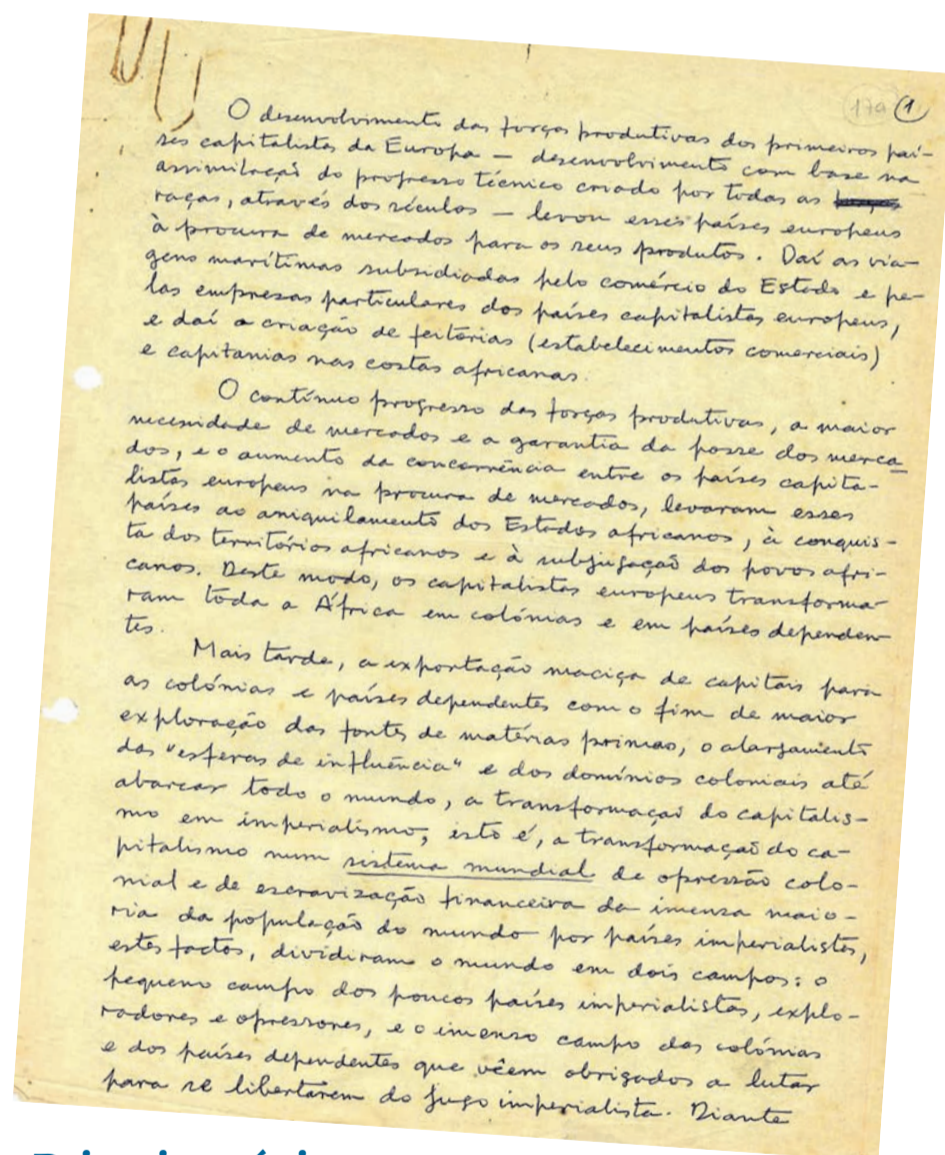 179 1
O desenvolvimento das forças produtivas dos primeiros paí-
ses capitalistas da Europa — desenvolvimento com base na
assimilação do progresso técnico criado por todas as
raças, através dos séculos — levou esses países europeus
à procura de mercados para os seus produtos. Daí as via-
gens marítimas subsidiadas pelo comércio do Estado e pe-
las empresas particulares dos países capitalistas europeus,
e daí a criação de feitorias (estabelecimentos comerciais)
e capitanias nas costas africanas.
O contínuo progresso das forças produtivas, a maior
necessidade de mercados e a garantia da posse dos merca-
dos, e o aumento da concorrência entre os países capita-
listas europeus na procura de mercados, levaram esses
países ao aniquilamento dos Estados africanos, à conquis-
ta dos territórios africanos e à subjugação dos povos afri-
canos. Deste modo, os capitalistas europeus transforma-
ram toda a África em colónias e em países dependen-
tes.
Mais tarde, a exportação maciça de capitais para
as colónias e países dependentes com o fim de maior
exploração das fontes de matérias primas, o alargamento
das "esferas de influência" e dos domínios coloniais até
abarcar todo o mundo, a transformação do capitalis-
mo em imperialismo, isto é, a transformação do ca-
pitalismo num sistema mundial de opressão colo-
nial e de escravização financeira da imensa maio-
ria da população do mundo por países imperialistas,
estes factos, dividiram o mundo em dois campos: o
pequeno campo dos poucos países imperialistas, explo-
radores e opressores, e o imenso campo das colónias
e dos países dependentes que vêem obrigados a lutar
para se libertarem do jugo imperialista. Diante